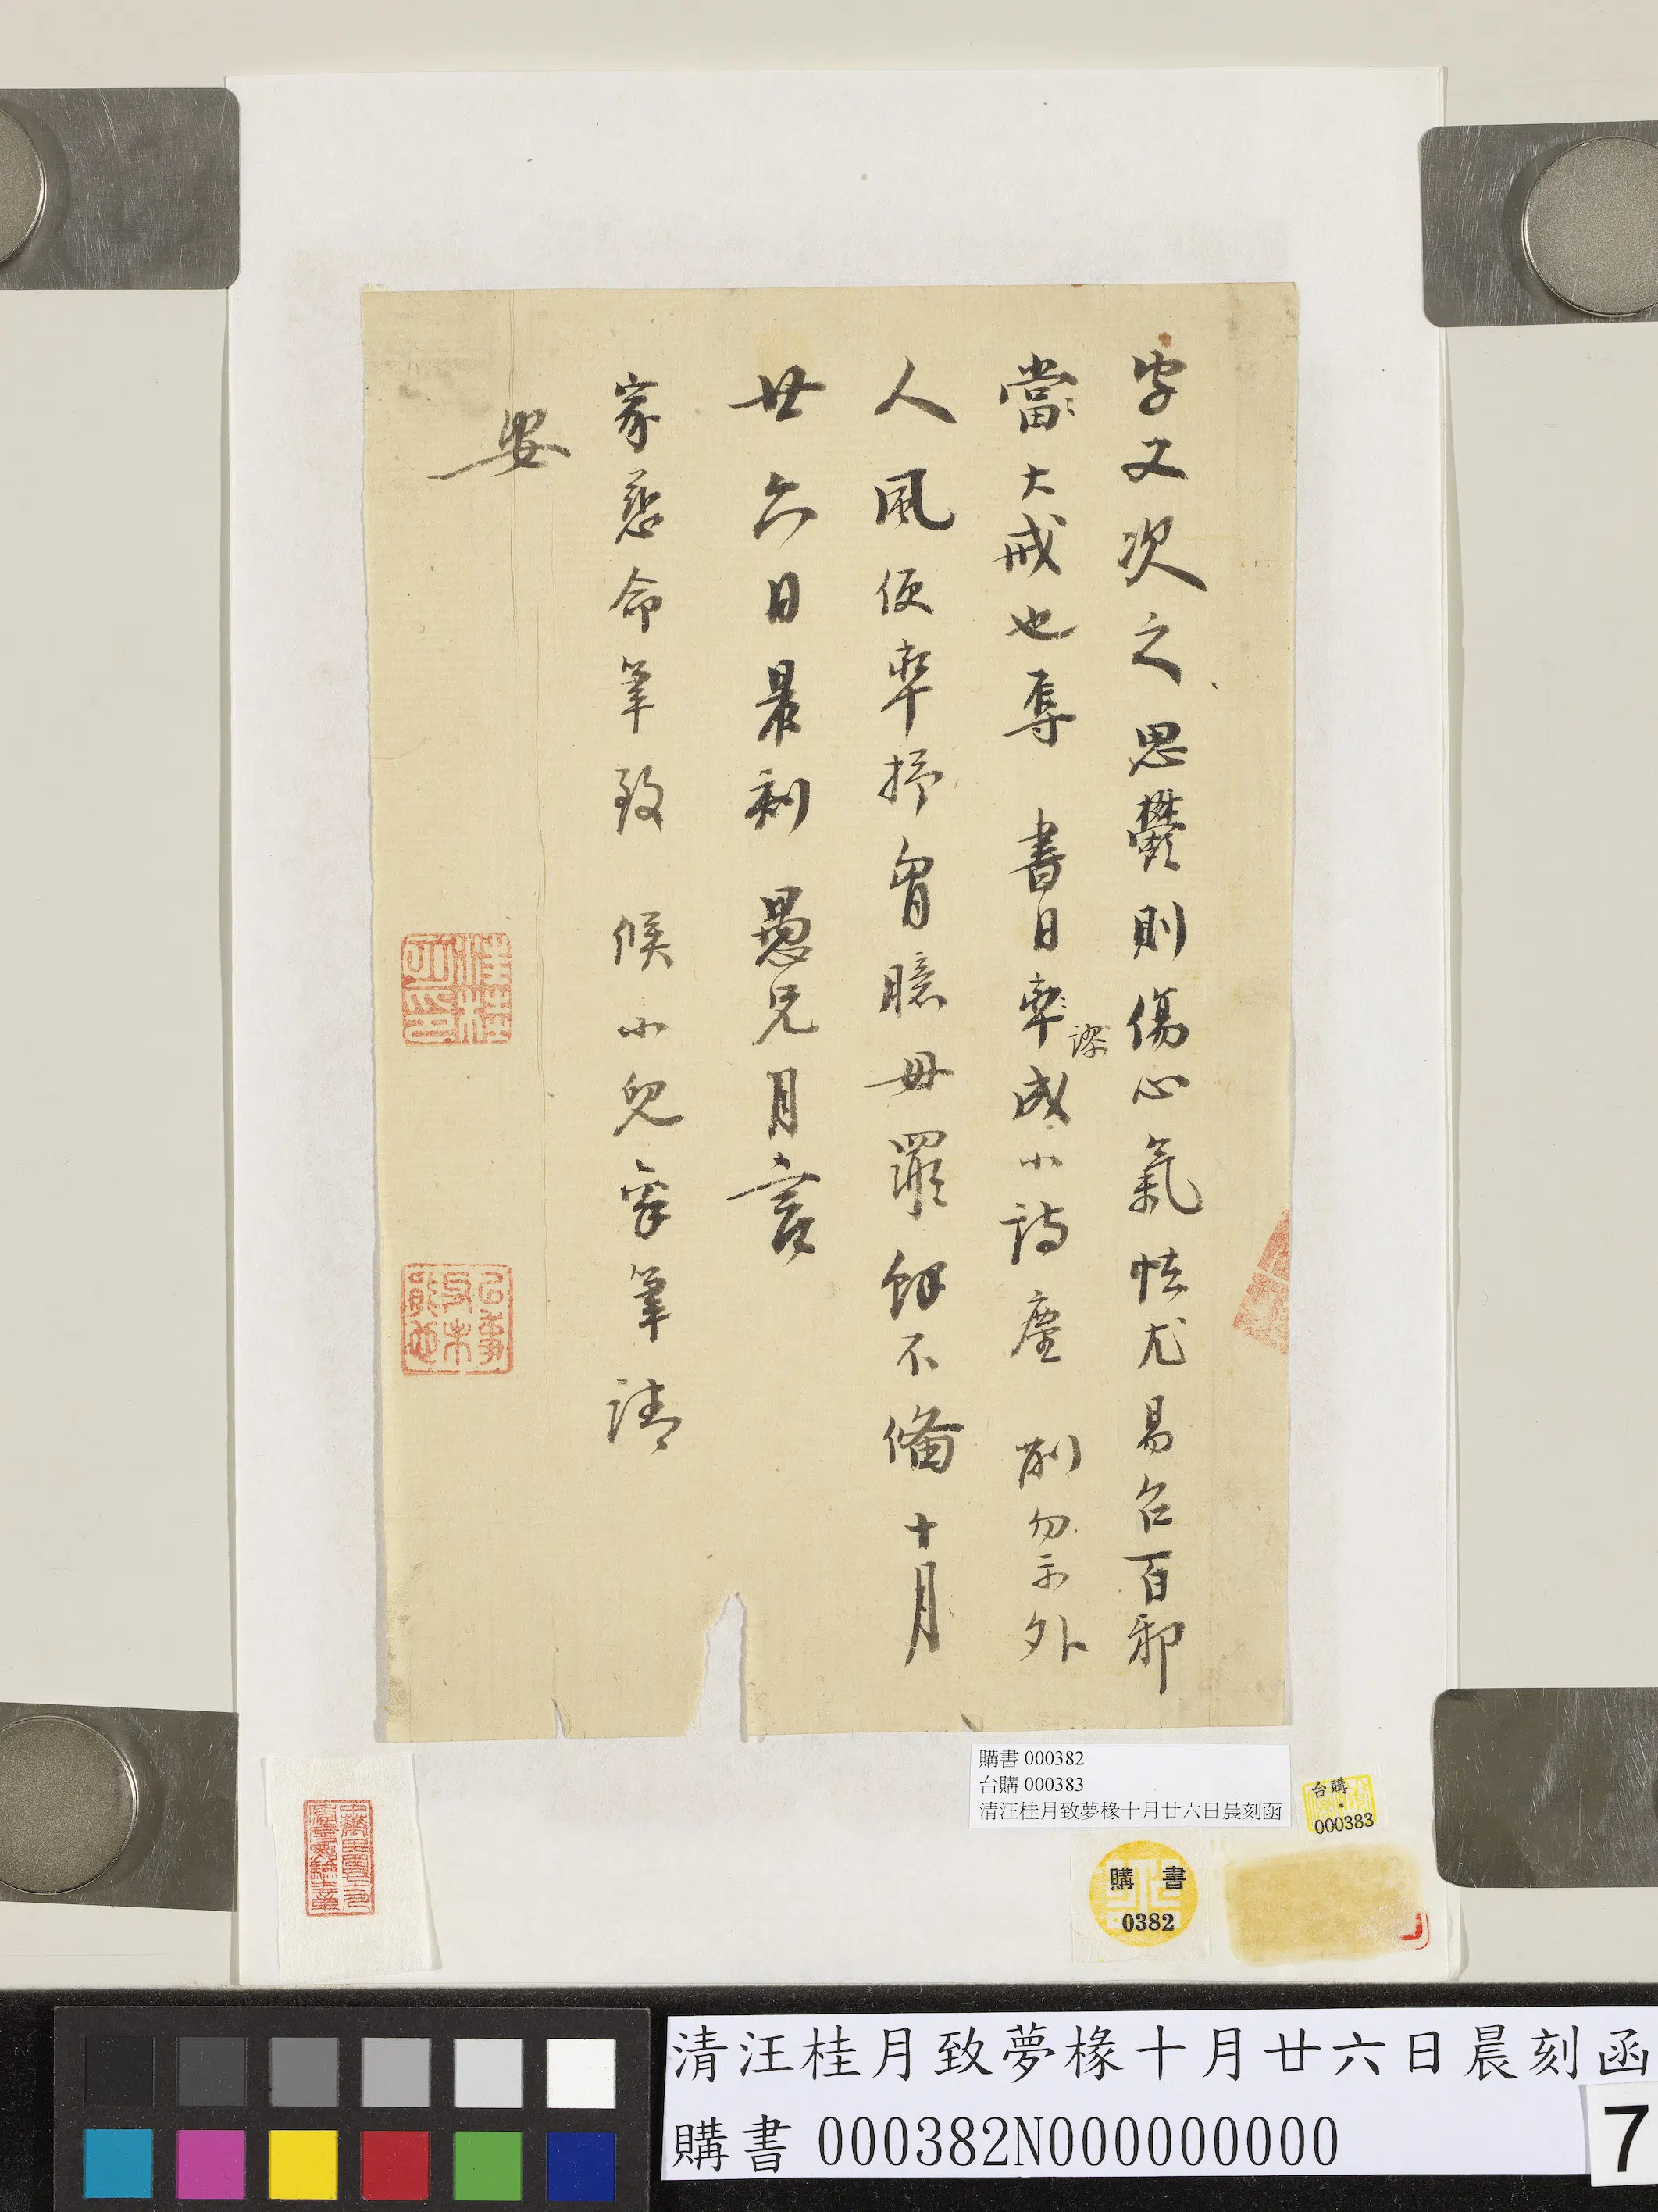 字又次之思鬱則傷心氣怯尤易召百邪
當大戒也辱 書日率謬成小詩塵 削勿示外
人風便率抒胷臆毋罪餘不備十月
廿六日晨刻 愚兄月言
家慈命筆致 候小兒寄筆請
安
購書 000382
台購 000383
清汪桂月致夢椽十月廿六日晨刻函
台購
000383
購 書
0382
清汪桂月致夢椽十月廿六日晨刻函
購書 000382N000000000
7